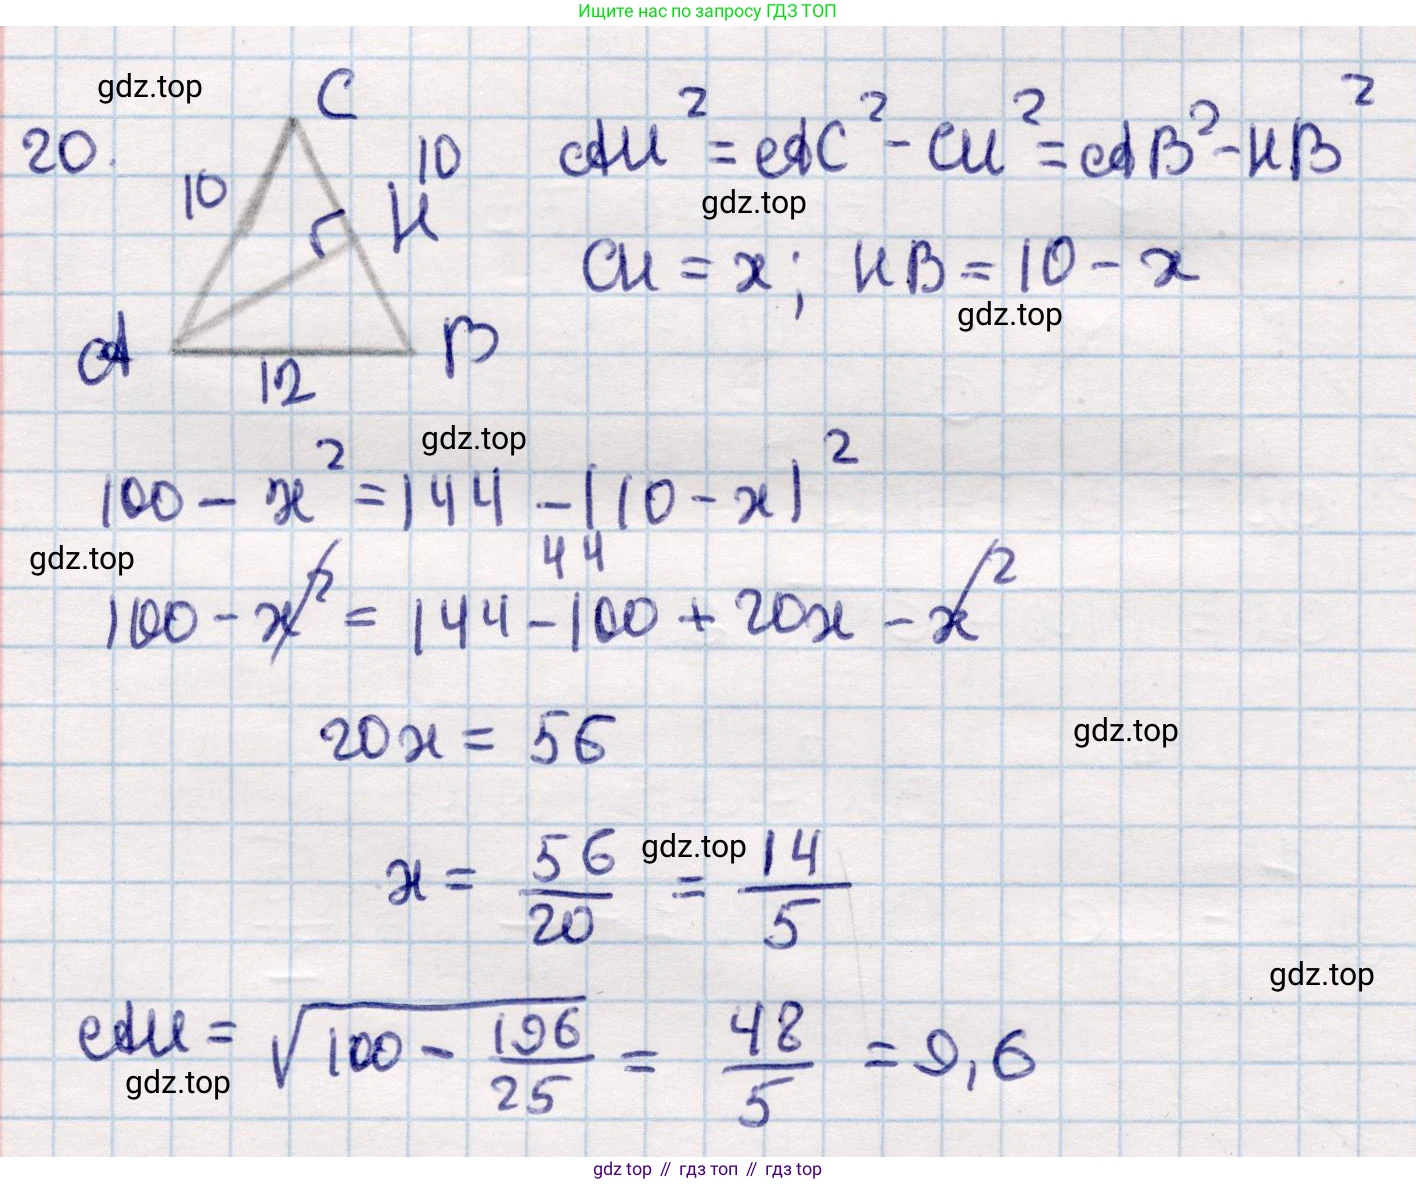 Ищите нас по запросу ГДЗ ТОП
gdz.top
20.
C
10
10
H
A
B
12
AH² = AC² - CH² = AB² - HB²
gdz.top
CH = x; HB = 10 - x
gdz.top
gdz.top
100 - x² = 144 - (10 - x)²
gdz.top
44
100 - x² = 144 - 100 + 20x - x²
20x = 56
gdz.top
x = 56/20 = 14/5
gdz.top
gdz.top
AH = √(100 - 196/25) = 48/5 = 9,6
gdz.top
gdz top // гдз топ // gdz top